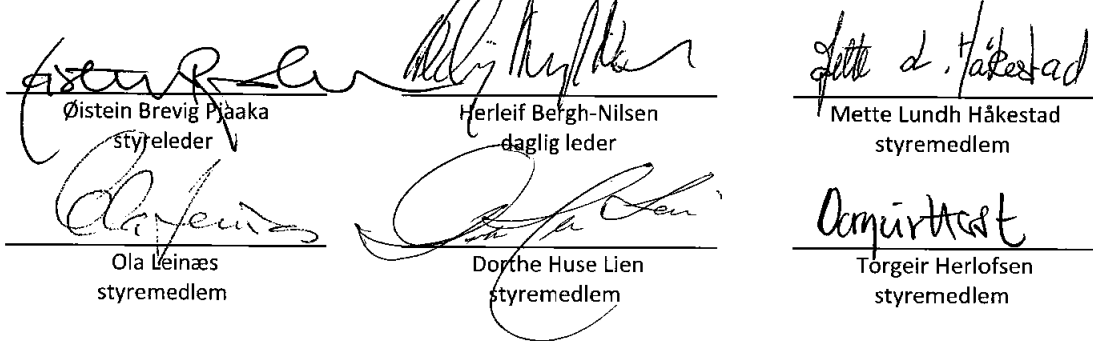 Øistein Brevig Pjaaka
styreleder
Herleif Bergh-Nilsen
daglig leder
Mette L. Håkestad
Mette Lundh Håkestad
styremedlem
Ola Leinæs
Ola Leinæs
styremedlem
Dorthe Huse Lien
styremedlem
Torgeir Herlofsen
styremedlem